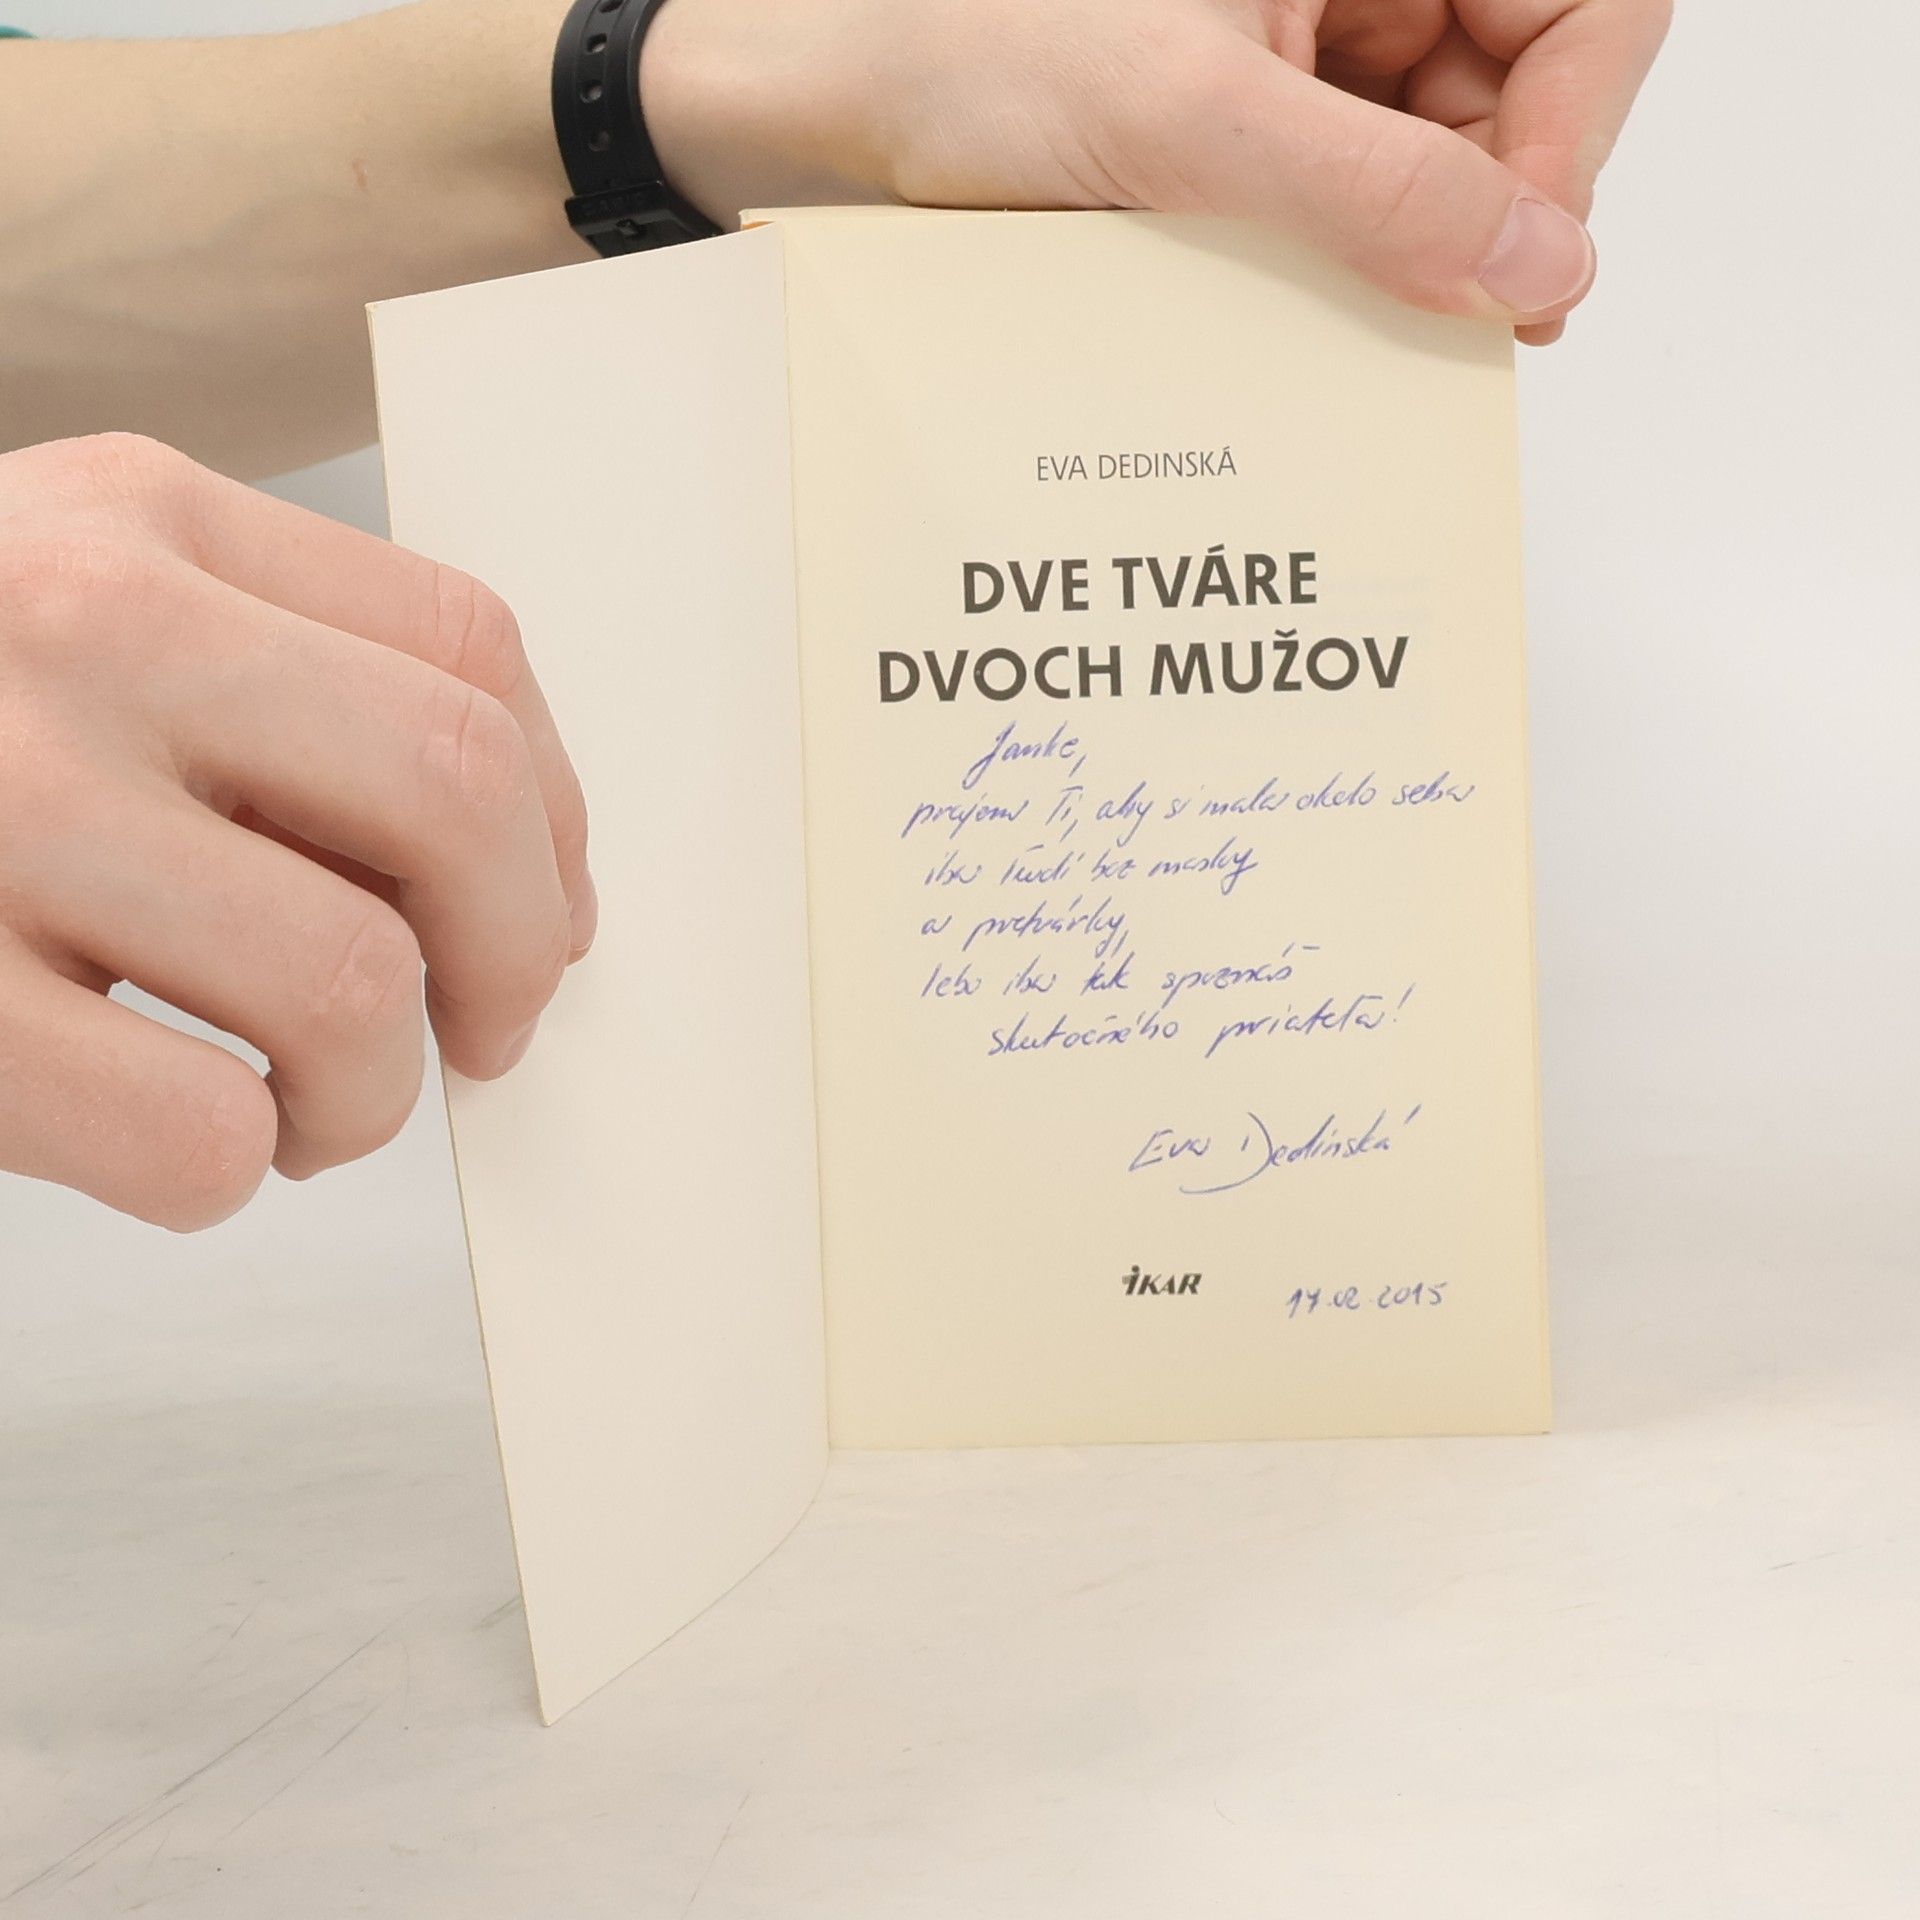 EVA DEDINSKÁ
DVE TVÁRE
DVOCH MUŽOV
Janke,
prajem Ti, aby si mala okolo seba
iba ľudí bez masky
a pretvárky,
lebo iba tak spoznáš
skutočného priateľa!
Eva Dedinská
IKAR
17.02.2015